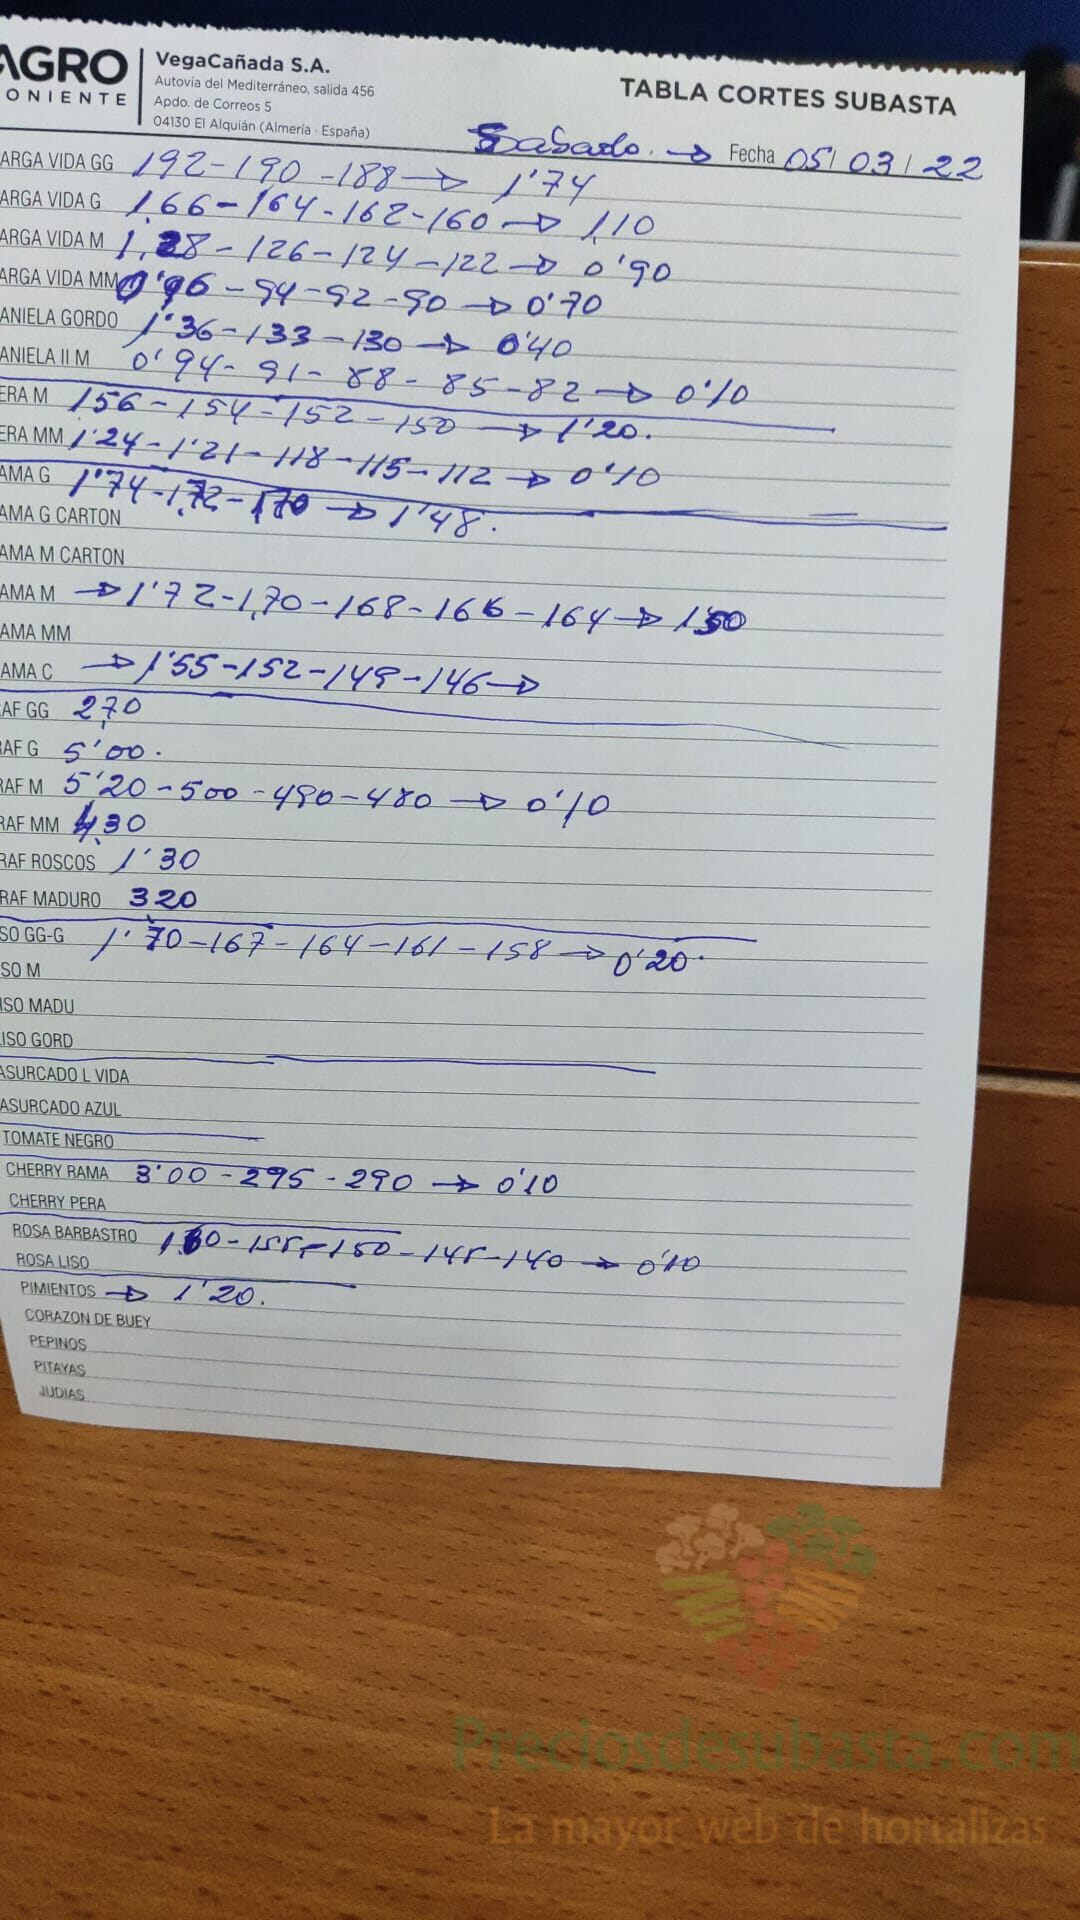 AGRO
ONIENTE
VegaCañada S.A.
Autovía del Mediterráneo, salida 456
Apdo. de Correos 5
04130 El Alquián (Almería · España)
TABLA CORTES SUBASTA
Sabado. → Fecha 05/03/22
ARGA VIDA GG 192-190-188 → 1'74
ARGA VIDA G 1,66-164-162-160 → 1,10
ARGA VIDA M 1,28-126-124-122 → 0'90
ARGA VIDA MM 0'96-94-92-90 → 0'70
ANIELA GORDO 1'36-133-130 → 0'40
ANIELA II M 0'94-91-88-85-82 → 0'10
ERA M 156-154-152-150 → 1'20.
ERA MM 1'24-1'21-118-115-112 → 0'10
AMA G 1'74-1,72-1,70 → 1'48.
AMA G CARTON
AMA M CARTON
AMA M → 1'72-1,70-168-166-164 → 1'50
AMA MM
AMA C → 1'55-152-149-146 →
AF GG 2,70
AF G 5'00.
AF M 5'20-500-490-480 → 0'10
RAF MM 4,30
RAF ROSCOS 1'30
RAF MADURO 3'20
SO GG-G 1'70-167-164-161-158 → 0'20.
SO M
ISO MADU
ISO GORD
ASURCADO L VIDA
ASURCADO AZUL
TOMATE NEGRO
CHERRY RAMA 3'00-295-290 → 0'10
CHERRY PERA
ROSA BARBASTRO 1,60-155-150-145-140 → 0'10
ROSA LISO
PIMIENTOS → 1'20.
CORAZON DE BUEY
PEPINOS
PITAYAS
JUDIAS
Preciosdesubasta.com
La mayor web de hortalizas